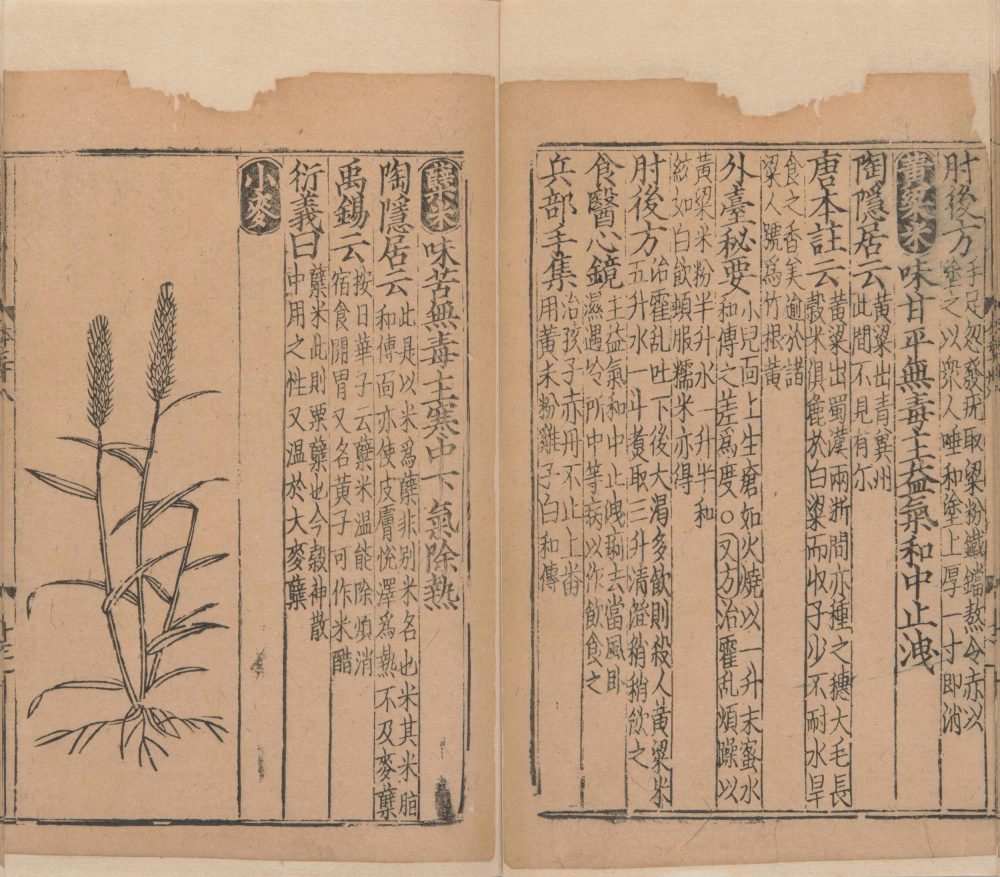 肘後方手足忽發疣取粱粉鐵鐺熬令赤以
塗之以眾人唾和塗上厚一寸即消
黃粱米味甘平無毒主益氣和中止洩
陶隱居云黃粱出青冀州
此間不見有尔
唐本註云黃粱出蜀漢兩浙間亦種之穗大毛長
穀米俱麁於白粱而收子少不耐水旱
食之香美逾於諸
粱人號爲竹根黃
外臺秘要小兒面上生瘡如火燒以一升末蜜水
和傅之差爲度○又方治霍乱煩躁以
黃粱米粉半升水一升半和
絞如白飲頓服糯米亦得
肘後方治霍乱吐下後大渴多飲則殺人黃粱米
五升水一斗煑取三升清澄稍稍飲之
食醫心鏡主益氣和中止洩痢去當風卧
濕遇冷所中等病以作飲食之
兵部手集治孩子赤丹不止上畨
用黃末粉雞子白和傅
蘖米味苦無毒主寒中下氣除熱
陶隱居云此是以米爲蘖非别米名也米其米脂
和傅面亦使皮膚悅澤爲熱不及麥蘖
禹錫云按日華子云蘖米温能除煩消
宿食開胃又名黃子可作米醋
衍義曰蘖米此則粟蘖也今穀神散
中用之性又温於大麥蘖
小麥